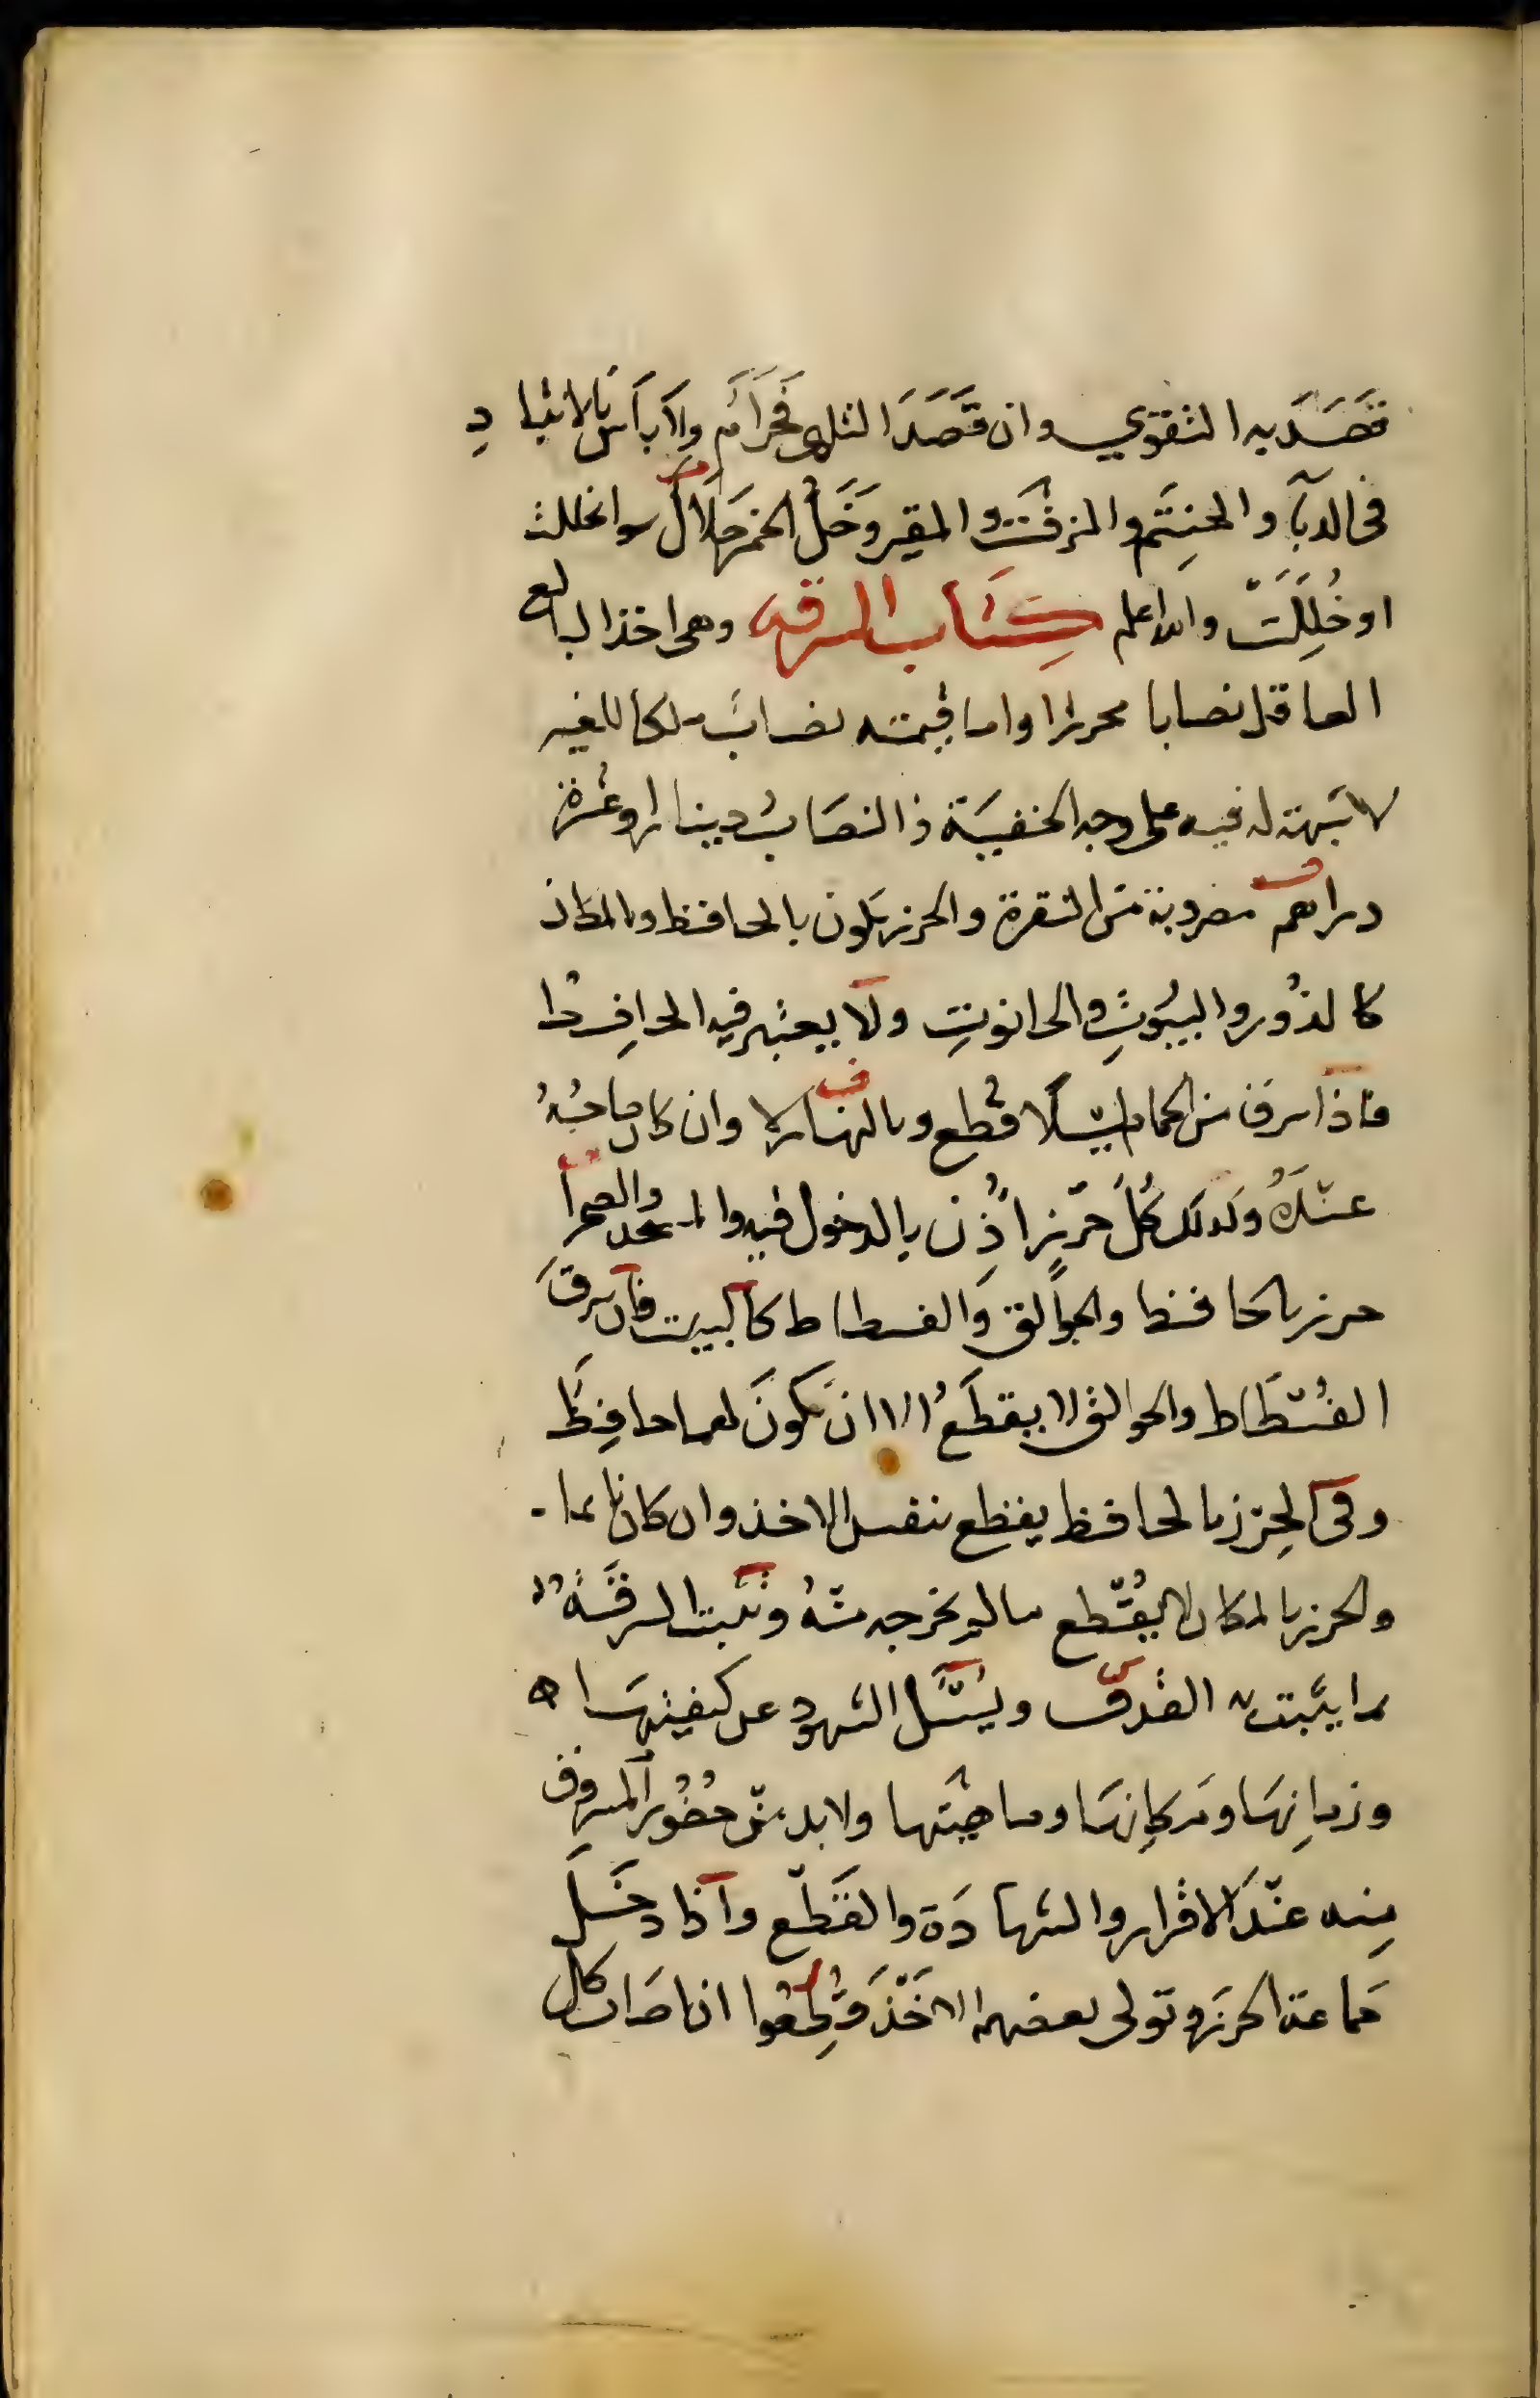 قصَدَ به التقوي وان قَصَدَ التلهى فحَرَامٌ ولاَ بأس بالانتبا دِ
فى الدبآ والحنِتَم والمزفت والمقير وَخَلُّ الخمر حَلاَلٌ سوا تخللت
او خُلِلَتْ والله اعلم كتَاب السرقه وهى اخذ البالع
العاقل نصابا محررا او ما قيمته نصابًا ملكا للغير
لا شبهة له فيه على وجه الخفيَة والنصَابُ دينار او عشرة
دراهم مضروبة من النقرة والحرز يكون بالحافظ وبالمكان
كالدُور والبيُوتِ والحانوتِ ولا يعتبر فيه الحافِظ
فاذا سرق من الحمام ليلًا قُطع وبالنهار لا وان كان صاحبُهُ
عندَهُ وكذلك كُلُ حرْزٍ اُذِن بالدخول فيه والمسجد والصحرا
حرز بالحافظ والجوالق وَالفسطاط كالبيت فان سرق
الفُسْطَاط والجوالق لا يقطَعُ الا ان يكونَ لهما حافِظ
وفى الحِرْز بالحافظ يقطع بنفس الاخذ وان كان نايما
والحرز بالمكان لا يُقْطع مالم يخرجه منْهُ وتثبت السرقَةُ
بما يثبت به القذف ويُسْئَل الشهود عن كيفيتهَا
وزمانِهَا ومكانِهَا وماهيتها ولابد من حُضُور المسروق
مِنه عنْدَ الاقرار والشهادَة والقَطْع واذا دخَل
جماعة الحرز وتولى بعضهم الاخْذَ قُطِعُوا ان اصَاب كل